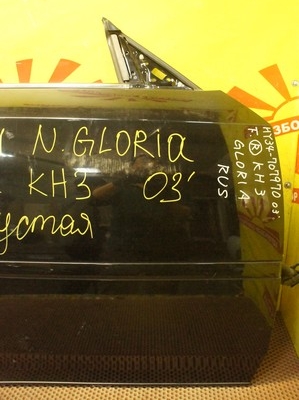 N. GLORIA
KH3 03'
устая
HY34-707970 03'
F. Ⓡ KH3
GLORIA
RUS
ЗБО